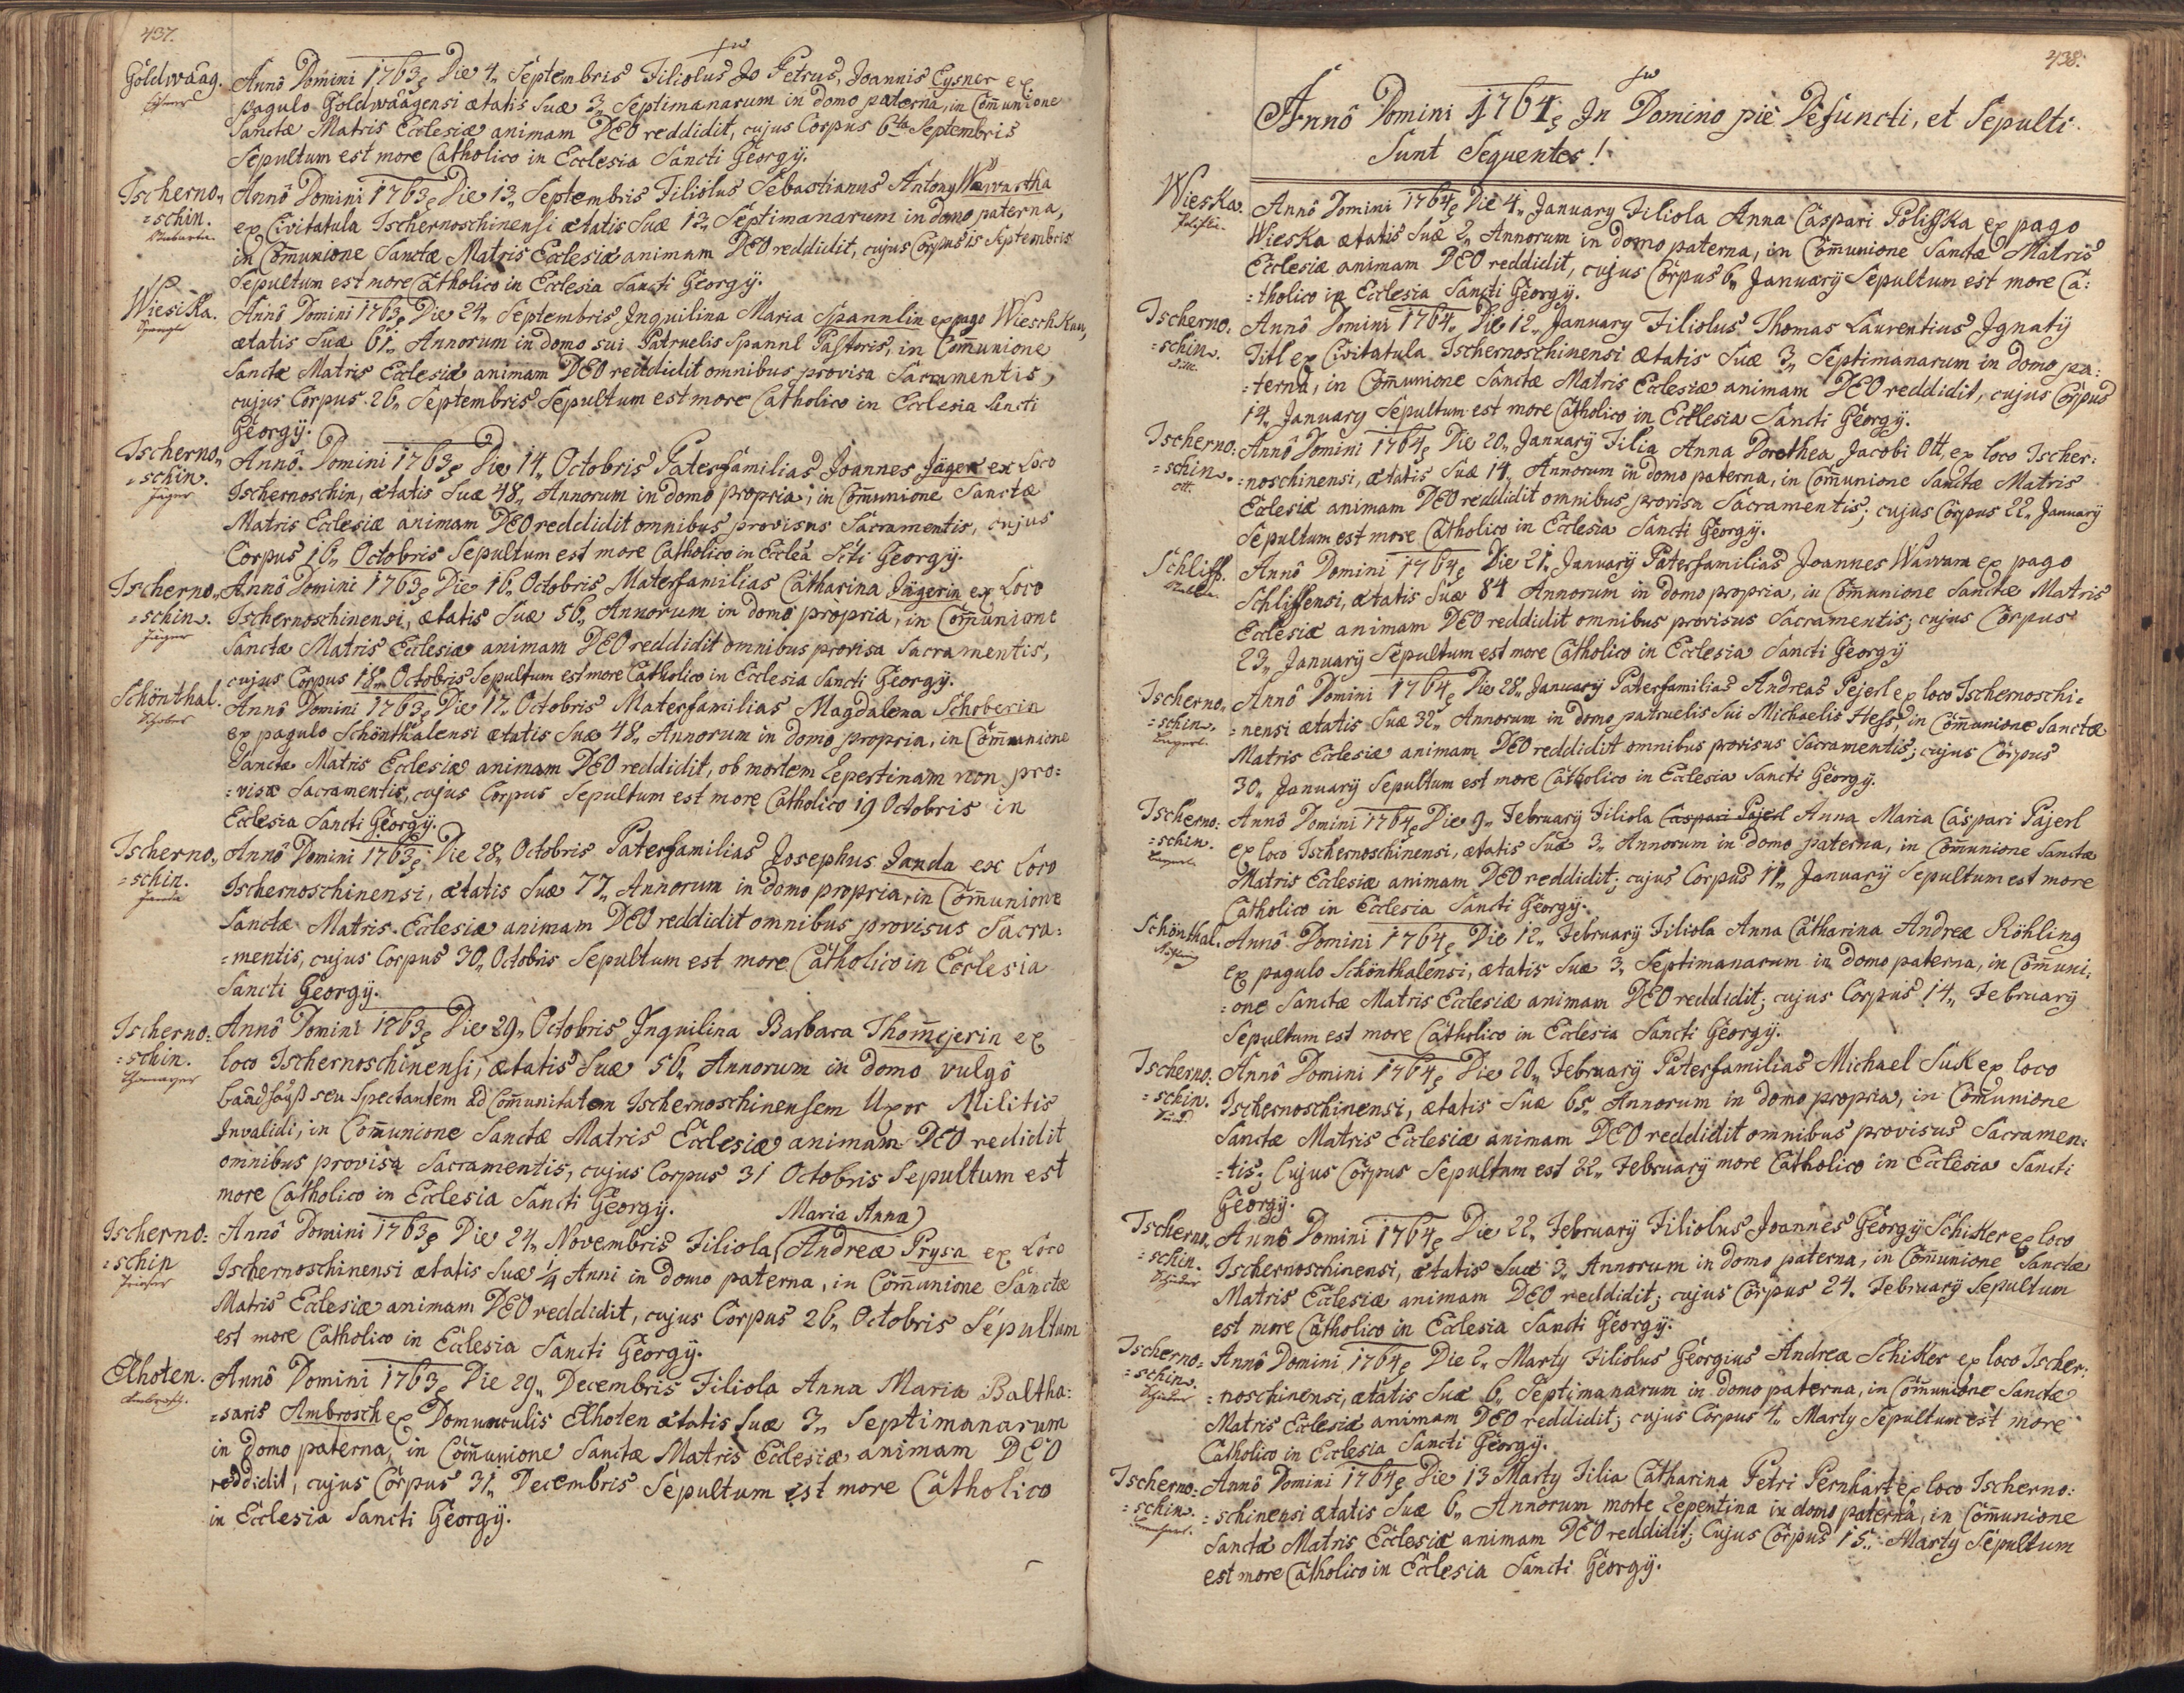 437.
Göldwäag. Annô Domini 1763 Die 4„ Septembris Filiolus Jo Petrus, Joannis Eysner ex
pagulo Göldwäagensi ætatis Suæ 3„ Septimanarum in domo paterna, in Com̄unione
Sanctæ Matris Ecclesiæ animam DEO reddidit, cujus Corpus 6ta Septembris
Sepultum est more Catholico in Ecclesia Sancti Georgÿ.
Tscherno„ Annô Domini 1763 Die 13„ Septembris Filiolus Sebastianus Antony Wawartha
=schin. ex Civitatula Tschernoschinensi ætatis Suæ 13„ Septimanarum in domo paterna,
in Com̄unione Sanctæ Matris Ecclesiæ animam DEO reddidit, cujus Corpus 15 Septembris
Sepultum est more Catholico in Ecclesia Sancti Georgÿ.
Wiesika. Annô Domini 1763 Die 24„ Septembris Inquilina Maria Spannlin ex pago Wieschkau,
ætatis Suæ 61„ Annorum in domo sui Patruelis Spannl Pastoris, in Com̄unione
Sanctæ Matris Ecclesiæ animam DEO reddidit omnibus provisa Sacramentis,
cujus Corpus 26„ Septembris Sepultum est more Catholico in Ecclesia Sancti
Georgÿ.
Tscherno„ Annô Domini 1763 Die 14„ Octobris Paterfamilias Joannes Jäger ex Loco
=schin. Tschernoschin, ætatis Suæ 48„ Annorum in domo propria, in Com̄unione Sanctæ
Jäger
Matris Ecclesiæ animam DEO reddidit omnibus provisus Sacramentis, cujus
Corpus 16„ Octobris Sepultum est more Catholico in Eccleã Scti Georgÿ.
Tscherno„ Annô Domini 1763 Die 16„ Octobris Materfamilias Catharina Jägerin ex Loco
=schin. Tschernoschinensi, ætatis Suæ 56„ Annorum in domo propria, in Com̄unione
Jäger
Sanctæ Matris Ecclesiæ animam DEO reddidit omnibus provisa Sacramentis,
cujus Corpus 18„ Octobris Sepultum est more Catholico in Ecclesia Sancti Georgÿ.
Schönthal. Annô Domini 1763 Die 17„ Octobris Materfamilias Magdalena Schoberin
Schober
ex pagulo Schönthalensi ætatis Suæ 48„ Annorum in domo propria, in Com̄unione
Sanctæ Matris Ecclesiæ animam DEO reddidit, ob mortem Lepertinam non pro:
=visæ Sacramentis, cujus Corpus Sepultum est more Catholico 19 Octobris in
Ecclesia Sancti Georgÿ.
Tscherno„ Annô Domini 1763 Die 28„ Octobris Paterfamilias Josephus Janda ex Loco
=schin. Tschernoschinensi, ætatis Suæ 77„ Annorum in domo propria, in Com̄unione
Janda
Sanctæ Matris Ecclesiæ animam DEO reddidit omnibus provisus Sacra:
=mentis, cujus Corpus 30„ Octobris Sepultum est more Catholico in Ecclesia
Sancti Georgÿ.
Tscherno: Annô Domini 1763 Die 29„ Octobris Inquilina Barbara Thom̄ejerin ex
=schin. loco Tschernoschinensi, ætatis Suæ 56„ Annorum in domo vulgô
baadhauß seu Spectantem ad Com̄unitatem Tschernoschinensem Uxor Militis
Invalidi, in Com̄unione Sanctæ Matris Ecclesiæ animam DEO redidit
omnibus provisa Sacramentis, cujus Corpus 31 Octobris Sepultum est
more Catholico in Ecclesia Sancti Georgÿ.
Maria Anna
Tscherno: Annô Domini 1763 Die 24„ Novembris Filiola Andreæ Prysa ex Loco
=schin Tschernoschinensi ætatis Suæ 1/4 Anni in domo paterna, in Com̄unione Sanctæ
Matris Ecclesiæ animam DEO reddidit, cujus Corpus 26„ Octobris Sepultum
est more Catholico in Ecclesia Sancti Georgÿ.
Elhoten. Annô Domini 1763 Die 29„ Decembris Filiola Anna Maria Baltha:
=saris Ambrosch ex Domunculis Elhoten ætatis Suæ 3„ Septimanarum
in domo paterna, in Com̄unione Sanctæ Matris Ecclesiæ animam DEO
reddidit, cujus Corpus 31„ Decembris Sepultum est more Catholico
in Ecclesia Sancti Georgÿ.
438.
Annô Domini 1764 In Domino piè Defuncti, et Sepulti
Sunt Sequentes!
Wieska. Annô Domini 1764 Die 4„ January Filiola Anna Caspari Polifka ex pago
Wieska ætatis Suæ 2„ Annorum in domo paterna, in Com̄unione Sanctæ Matris
Ecclesiæ animam DEO reddidit, cujus Corpus 6„ January Sepultum est more Ca:
=tholico in Ecclesia Sancti Georgÿ.
Tscherno: Annô Domini 1764„ Die 12„ January Filiolus Thomas Laurentius Ignatÿ
=schin. Titl ex Civitatula Tschernoschinensi ætatis Suæ 3„ Septimanarum in domo pa:
=terna, in Com̄unione Sanctæ Matris Ecclesiæ animam DEO reddidit, cujus Corpus
14„ January Sepultum est more Catholico in Ecclesia Sancti Georgÿ.
Tscherno: Annô Domini 1764 Die 20„ Januarÿ Filia Anna Dorothea Jacobi Ott, ex loco Tscher:
=schin. =noschinensi, ætatis Suæ 14„ Annorum in domo paterna, in Com̄unione Sanctæ Matris
Ott.
Ecclesiæ animam DEO reddidit omnibus provisa Sacramentis; cujus Corpus 22„ January
Sepultum est more Catholico in Ecclesia Sancti Georgÿ.
Schliff. Annô Domini 1764 Die 21. Januarÿ Paterfamilias Joannes Wawram ex pago
Schliffensi, ætatis Suæ 84 Annorum in domo propria, in Com̄unione Sanctæ Matris
Ecclesiæ animam DEO reddidit omnibus provisus Sacramentis; cujus Corpus
23„ Januarÿ Sepultum est more Catholico in Ecclesia Sancti Georgÿ
Tscherno„ Annô Domini 1764 Die 28„ Januarÿ Paterfamilias Andreas Pejerl ex loco Tschernoschi=
=schin. =nensi ætatis Suæ 32„ Annorum in domo patruelis Sui Michaelis Hess, in Com̄unione Sanctæ
Matris Ecclesiæ animam DEO reddidit omnibus provisus Sacramentis; cujus Corpus
30„ Januarÿ Sepultum est more Catholico in Ecclesia Sancti Georgÿ.
Tscherno: Annô Domini 1764 Die 9„ February Filiola Caspari Pajerl Anna Maria Caspari Pajerl
=schin. ex loco Tschernoschinensi, ætatis Suæ 3„ Annorum in domo paterna, in Com̄unione Sanctæ
Matris Ecclesiæ animam DEO reddidit; cujus Corpus 11„ Januarÿ Sepultum est more
Catholico in Ecclesia Sancti Georgÿ.
Schönthal. Annô Domini 1764 Die 12„ February Filiola Anna Catharina Andreæ Röhling
ex pagulo Schönthalensi, ætatis Suæ 3„ Septimanarum in domo paterna, in Com̄uni:
=one Sanctæ Matris Ecclesiæ animam DEO reddidit; cujus Corpus 14„ February
Sepultum est more Catholico in Ecclesia Sancti Georgÿ.
Tscherno: Annô Domini 1764 Die 20„ February Paterfamilias Michael Suk ex loco
=schin. Tschernoschinensi, ætatis Suæ 65„ Annorum in domo propria, in Com̄unione
Sanctæ Matris Ecclesiæ animam DEO reddidit omnibus provisus Sacramen:
=tis; Cujus Corpus Sepultum est 22„ February more Catholico in Ecclesia Sancti
Georgÿ.
Tscherno„ Annô Domini 1764 Die 22„ February Filiolus Joannes Georgÿ Schikker ex loco
=schin. Tschernoschinensi, ætatis Suæ 3„ Annorum in domo paterna, in Com̄unione Sanctæ
Matris Ecclesiæ animam DEO reddidit; cujus Corpus 24. Februarÿ Sepultum
est more Catholico in Ecclesia Sancti Georgÿ.
Tscherno= Annô Domini 1764 Die 2„ Marty Filiolus Georgius Andreæ Schikker ex loco Tscher:
=schin. =noschinensi, ætatis Suæ 6„ Septimanarum in domo paterna, in Com̄unione Sanctæ
Matris Ecclesiæ animam DEO reddidit; cujus Corpus 4„ Marty Sepultum est more
Catholico in Ecclesia Sancti Georgÿ.
Tscherno: Annô Domini 1764 Die 13 Marty Filia Catharina Petri Pernhart ex loco Tscherno:
=schin. =schinensi ætatis Suæ 6„ Annorum morte Lepentina in domo paterna, in Com̄unione
Sanctæ Matris Ecclesiæ animam DEO reddidit; Cujus Corpus 15„ Marty Sepultum
est more Catholico in Ecclesia Sancti Georgÿ.